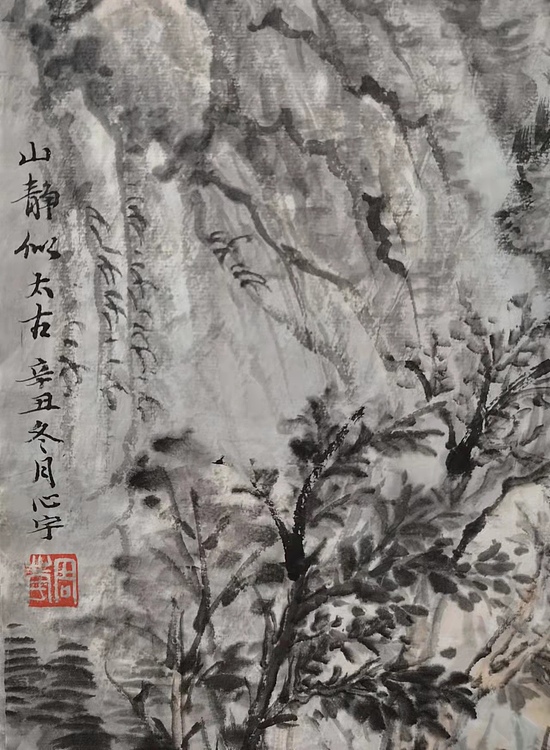 山静似太古 辛丑冬月心宇